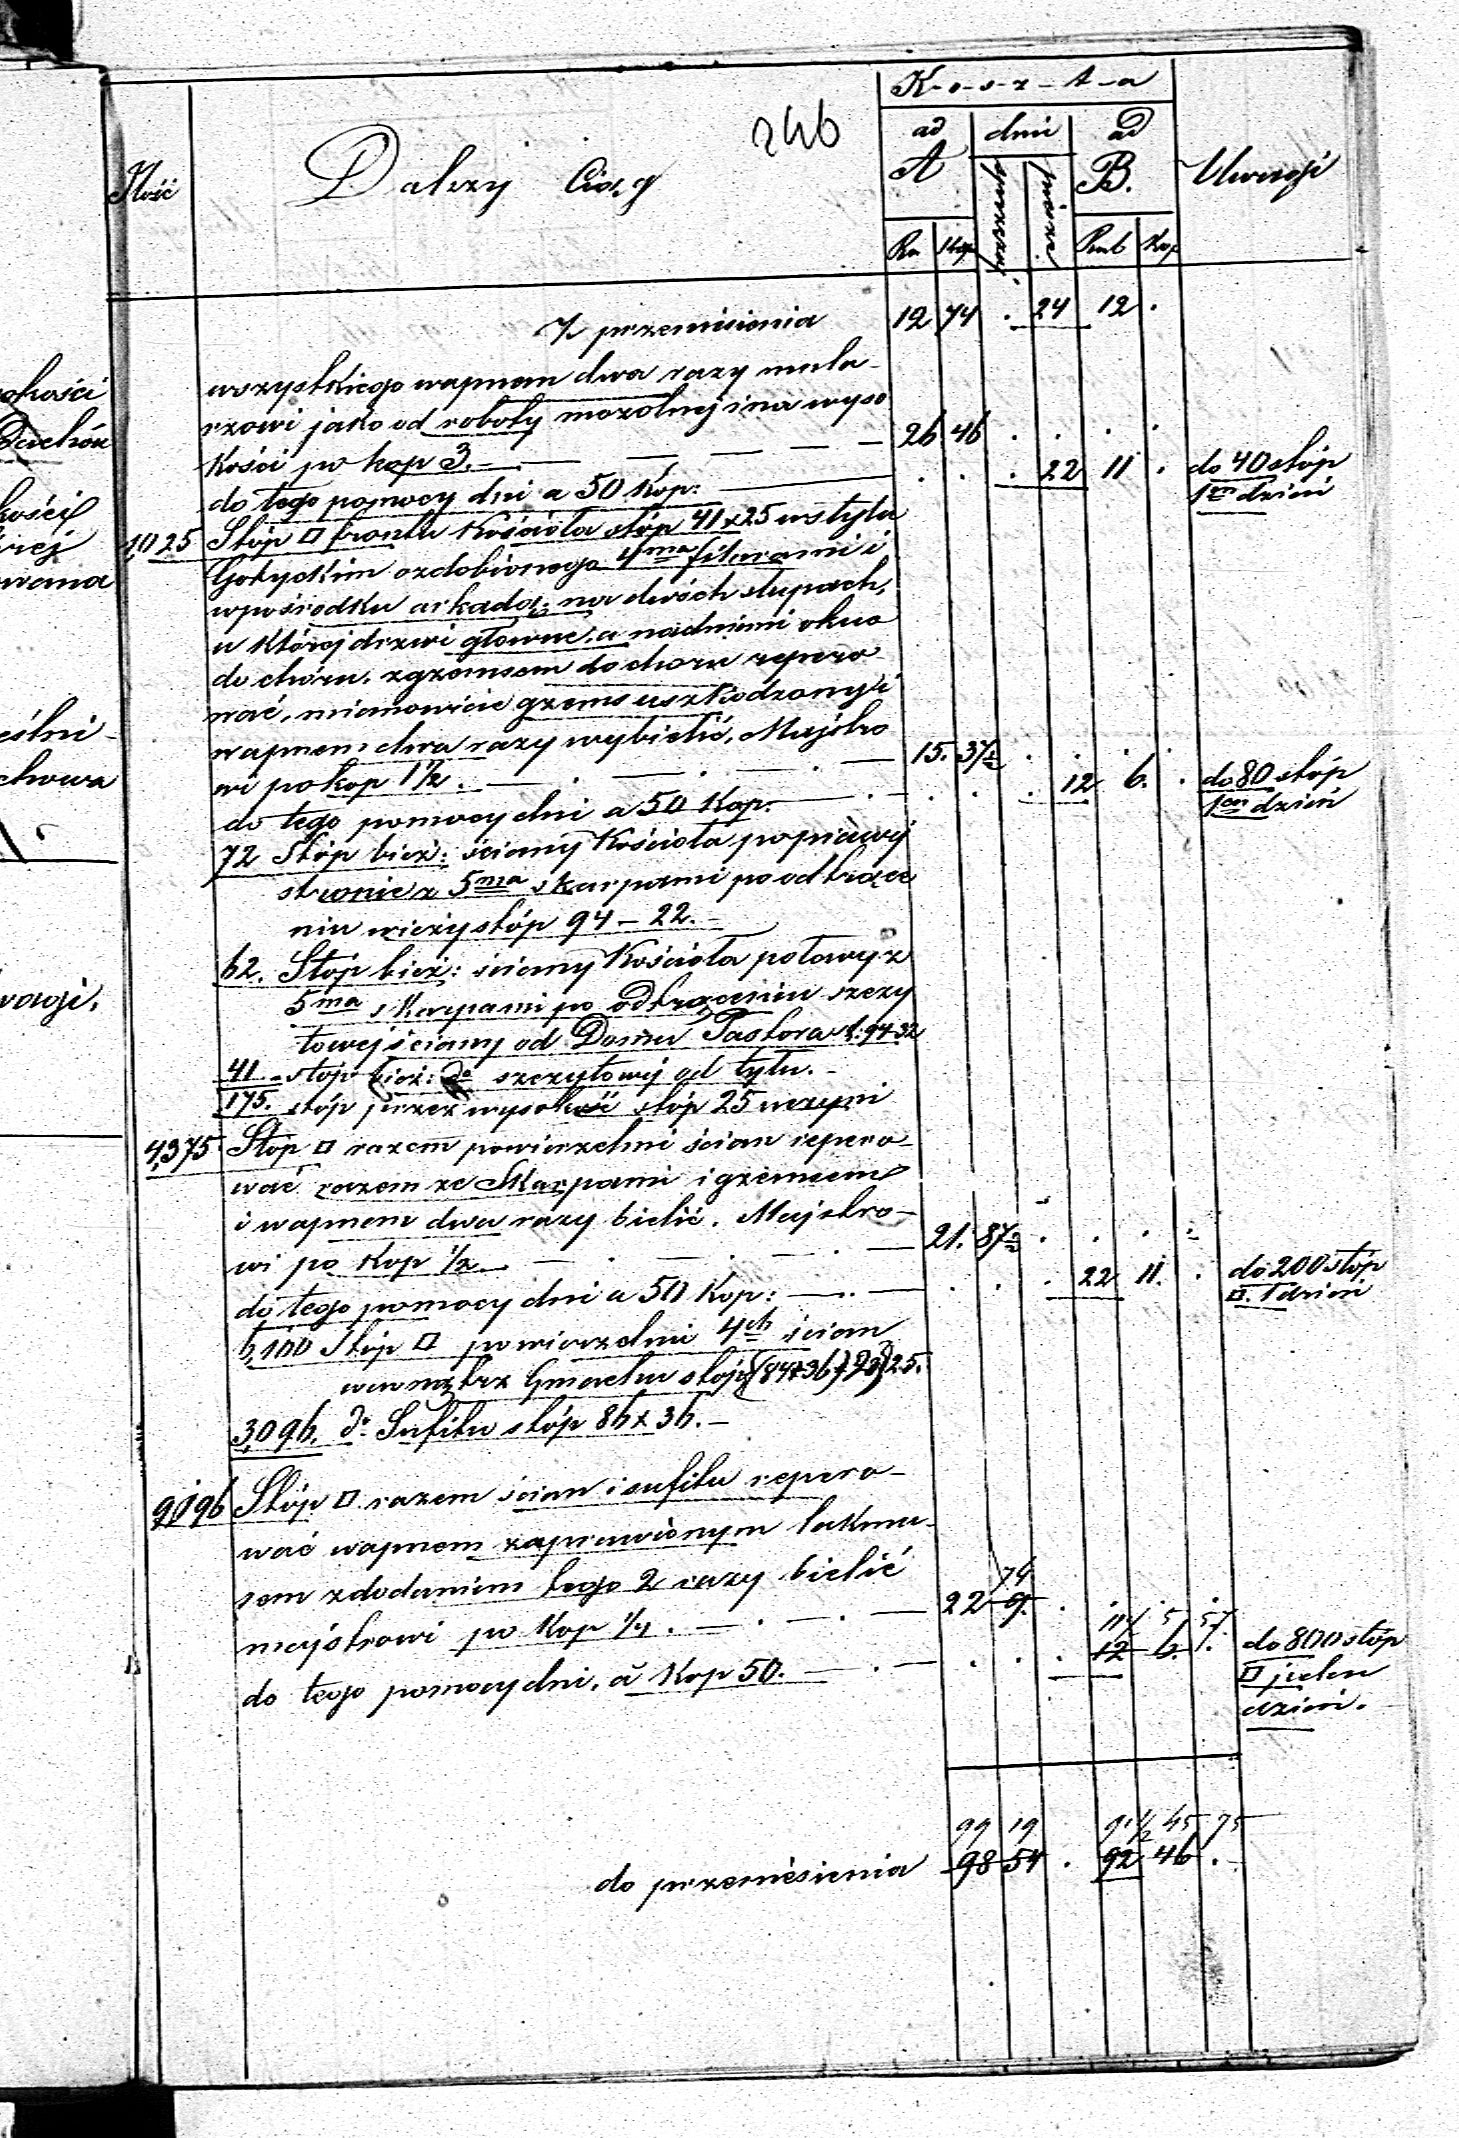 K-o-s-z-t-a
246
ad dni ad
Ilość Dalszy Ciąg A B. Uwagi
Ru Kop Rub Kop
Z przeniesienia 12 74 . 24 12 .
wszystkiego wapnem dwa razy mula-
rzowi jako od roboty mozolnej i na wyso
kości po kop 3. — 26 46 . . . .
do tego pomocy dni a 50 Kop: — . . . 22 11 . do 40 stóp
1en dzień
1,025 Stóp □ frontu Kościoła stóp 41 x 25 w stylu
Gotyckim ozdobionego 4ma filarami i
wpośrodku arkadą na dwóch słupach,
w której drzwi główne, a nad niemi okno
do chóru, z gzemsem do choru repero-
wać, mianowicie gzems uszkodzony i
wapnem dwa razy wybielić, Majstro
wi po kop 1½ . — 15. 37½ . . . .
do tego pomocy dni a 50 Kop. — . . . 12 6. . do 80 stóp
1en dzień
72 Stóp bież: ściany Kościoła po prawej
stronie z 5ma skarpami po odtrące
niu wieży stóp 94 – 22. –
62. Stóp bież: ściany Kościoła po lewej z
5ma skarpami po odtrąceniu szczy
towej ściany od Domu Pastora s. 94-32
41 - stóp bież: do szczytowej od tyłu. -
175. stóp przez wysokość stóp 25 uczyni
4,375 Stóp □ razem powierzchni ścian repero-
wać razem ze Skarpami i gzemsem
i wapnem dwa razy bielić. Majstro-
wi po Kop ½ — 21. 87½ . . . .
do tego pomocy dni a 50 Kop: — . . . 22 11. . do 200 stóp
□. 1 dzień
6,100 Stóp □ powierzchni 4ch ścian
wewnątrz Gmachu stóp {(84+36)+2}25.
3,096. do Sufitu stóp 86 x 36. –
9,196 Stóp □ razem ścian i sufitu repero-
wać wapnem zaprawionym lakmu-
sem z dodaniem tego 2 razy bielić
74
majstrowi po Kop ¼ . — 22 9. . . . .
11½ 5 57.
do tego pomocy dni, à Kop 50. — . . . 12 6. . do 800 stóp
□ jeden
dzień.
99 19 91½ 45 75
do przeniesienia 98 54 . 92 46 .